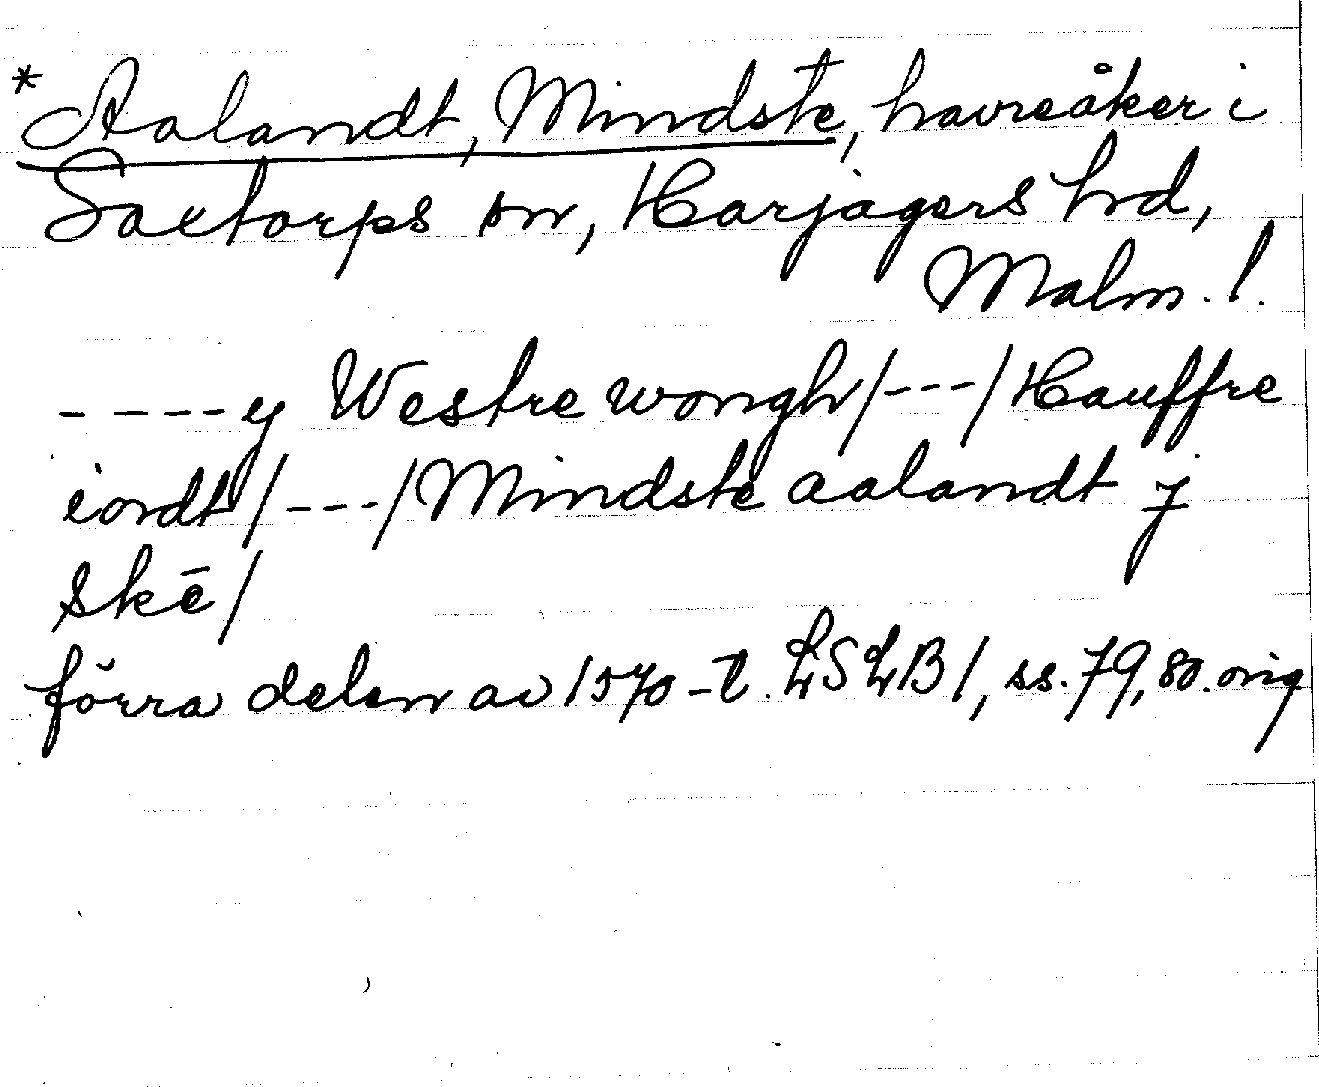 * Aalandt, Mindste, havreåker i
Saxtorps sn, Harjagers hd,
Malm. l.
- - - - - y Westre wongh/---/Hauffre
iordt/---/Mindste aalandt j
skē/
förra delen av 1570-t. LSLB1, ss. 79, 80. orig